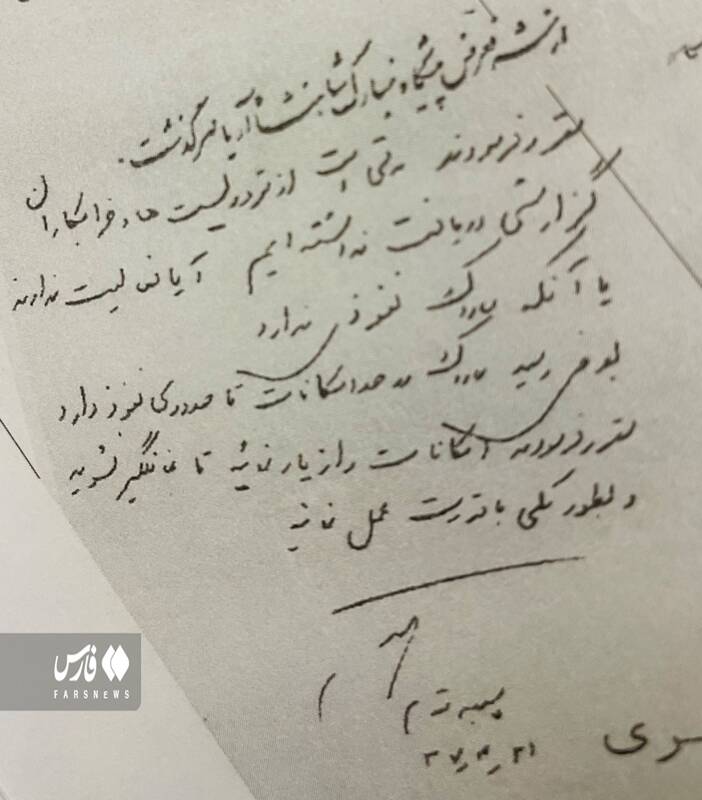 از شرف عرض پیشگاه مبارک شاهنشاه آریامهر گذشت.
مقرر فرمودند مدتی است از تروریست ها و خرابکاران
گزارشی دریافت نداشته ایم آیا فعالیت ندارند
یا آنکه ساواک نفوذی ندارد
بعرض رسید ساواک در حد امکانات تا حدودی نفوذ دارد
مقرر فرمودند امکانات را زیاد نمائید تا غافلگیر نشوید
و بطور کلی با قدرت عمل نمائید
فارس
FARSNEWS